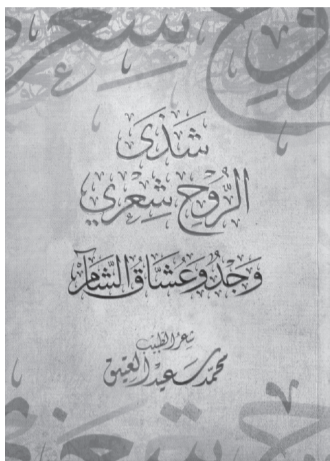 شَذَى
الرُّوْحِ شِعْرِي
وَجْدُ وَعُشَّاقُ الشَّامِ
شعر الطبيب
محمد سعيد العتيق